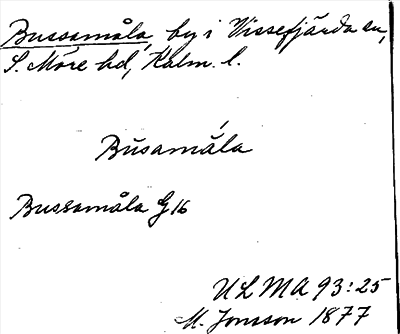 Bussamåla, by i Vissefjärda sn,
S. Möre hd, Kalm. l.
Busamåla
Bussamåla G 16
ULMA 93:25
M. Jonsson 1877